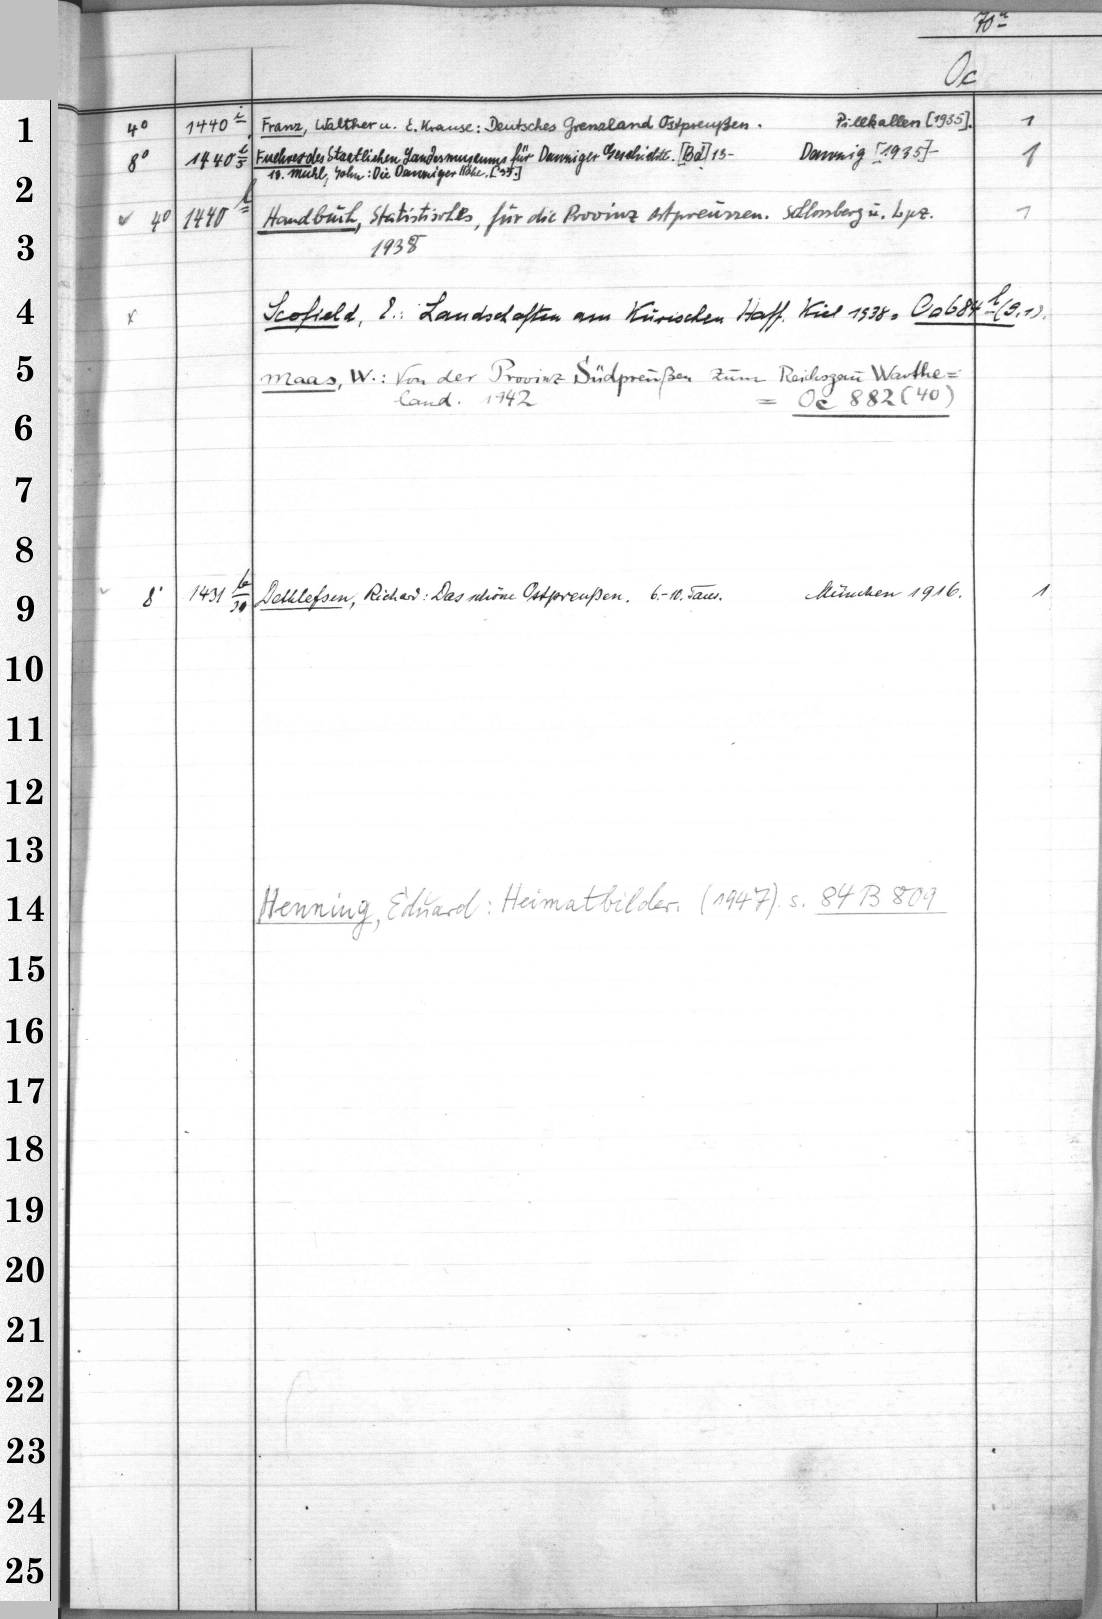 70
Oc
1 4° 1440 i Franz, Walther u. E. Krause: Deutsches Grenzland Ostpreußen. Pillkallen [1935]. 1
8° 1440 Fuehrer des Staatlichen Landesmuseums für Danziger Geschichte. [Bd] 13- Danzig [1935]- 1
2 John: Die Danziger Höhe.
3 4° 1440 Handbuch, Statistisches, für die Provinz Ostpreussen. Schlossberg u. Lpz. 1
1938
4 x Scofield, E.: Landschaften am Kurischen Haff. Kiel 1938 = Oo 684 (9,1).
5 Maas, W.: Von der Provinz Südpreußen zum Reichsgau Warthe=
land. 1942 = Oc 882 (40)
6
7
8
9 8° 1431 Dethlefsen, Richard: Das schöne Ostpreußen. 6.-10. Taus. München 1916. 1
10
11
12
13
14 Henning, Eduard: Heimatbilder. (1947). s. 84 B 809
15
16
17
18
19
20
21
22
23
24
25